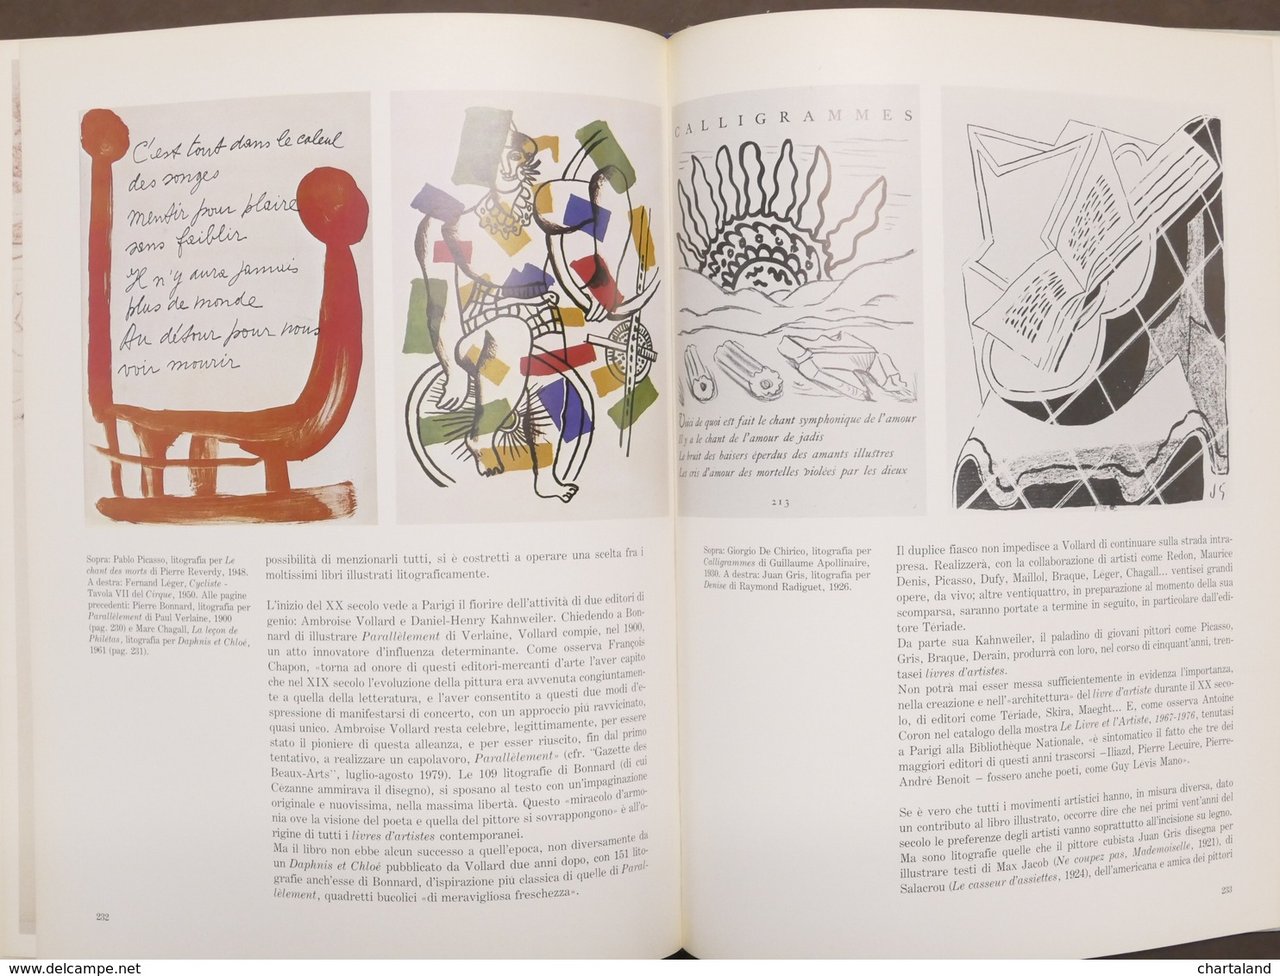 C'est tout dans le calcul
des songes
mentir pour plaire
sans faiblir
Il n'y aura jamais
plus de monde
Au détour pour nous
voir mourir
Sopra: Pablo Picasso, litografia per Le
chant des morts di Pierre Reverdy, 1948.
A destra: Fernand Léger, Cycliste -
Tavola VII del Cirque, 1950. Alle pagine
precedenti: Pierre Bonnard, litografia per
Parallèlement di Paul Verlaine, 1900
(pag. 230) e Marc Chagall, La leçon de
Philétas, litografia per Daphnis et Chloé,
1961 (pag. 231).
possibilità di menzionarli tutti, si è costretti a operare una scelta fra i
moltissimi libri illustrati litograficamente.
L'inizio del XX secolo vede a Parigi il fiorire dell'attività di due editori di
genio: Ambroise Vollard e Daniel-Henry Kahnweiler. Chiedendo a Bon-
nard di illustrare Parallèlement di Verlaine, Vollard compie, nel 1900,
un atto innovatore d'influenza determinante. Come osserva François
Chapon, «torna ad onore di questi editori-mercanti d'arte l'aver capito
che nel XIX secolo l'evoluzione della pittura era avvenuta congiuntamen-
te a quella della letteratura, e l'aver consentito a questi due modi d'e-
spressione di manifestarsi di concerto, con un approccio più ravvicinato,
quasi unico. Ambroise Vollard resta celebre, legittimamente, per essere
stato il pioniere di questa alleanza, e per esser riuscito, fin dal primo
tentativo, a realizzare un capolavoro, Parallèlement» (cfr. "Gazette des
Beaux-Arts", luglio-agosto 1979). Le 109 litografie di Bonnard (di cui
Cézanne ammirava il disegno), si sposano al testo con un'impaginazione
originale e nuovissima, nella massima libertà. Questo «miracolo d'armo-
nia ove la visione del poeta e quella del pittore si sovrappongono» è all'o-
rigine di tutti i livres d'artistes contemporanei.
Ma il libro non ebbe alcun successo a quell'epoca, non diversamente da
un Daphnis et Chloé pubblicato da Vollard due anni dopo, con 151 lito-
grafie anch'esse di Bonnard, d'ispirazione più classica di quelle di Paral-
lèlement, quadretti bucolici «di meravigliosa freschezza».
232
CALLIGRAMMES
Voici de quoi est fait le chant symphonique de l'amour
Il y a le chant de l'amour de jadis
Le bruit des baisers éperdus des amants illustres
Les cris d'amour des mortelles violées par les dieux
213
JG
Sopra: Giorgio De Chirico, litografia per
Calligrammes di Guillaume Apollinaire,
1930. A destra: Juan Gris, litografia per
Denise di Raymond Radiguet, 1926.
Il duplice fiasco non impedisce a Vollard di continuare sulla strada intra-
presa. Realizzerà, con la collaborazione di artisti come Redon, Maurice
Denis, Picasso, Dufy, Maillol, Braque, Léger, Chagall... ventisei grandi
opere, da vivo; altre ventiquattro, in preparazione al momento della sua
scomparsa, saranno portate a termine in seguito, in particolare dall'edi-
tore Tériade.
Da parte sua Kahnweiler, il paladino di giovani pittori come Picasso,
Gris, Braque, Derain, produrrà con loro, nel corso di cinquant'anni, tren-
tasei livres d'artistes.
Non potrà mai esser messa sufficientemente in evidenza l'importanza,
nella creazione e nell'«architettura» del livre d'artiste durante il XX seco-
lo, di editori come Tériade, Skira, Maeght... E, come osserva Antoine
Coron nel catalogo della mostra Le Livre et l'Artiste, 1967-1976, tenutasi
a Parigi alla Bibliothèque Nationale, «è sintomatico il fatto che tre dei
maggiori editori di questi anni trascorsi – Iliazd, Pierre Lecuire, Pierre-
André Benoit – fossero anche poeti, come Guy Lévis Mano».
Se è vero che tutti i movimenti artistici hanno, in misura diversa, dato
un contributo al libro illustrato, occorre dire che nei primi vent'anni del
secolo le preferenze degli artisti vanno soprattutto all'incisione su legno.
Ma sono litografie quelle che il pittore cubista Juan Gris disegna per
illustrare testi di Max Jacob (Ne coupez pas, Mademoiselle, 1921), di
Salacrou (Le casseur d'assiettes, 1924), dell'americana e amica dei pittori
233
www.delcampe.net
chartaland